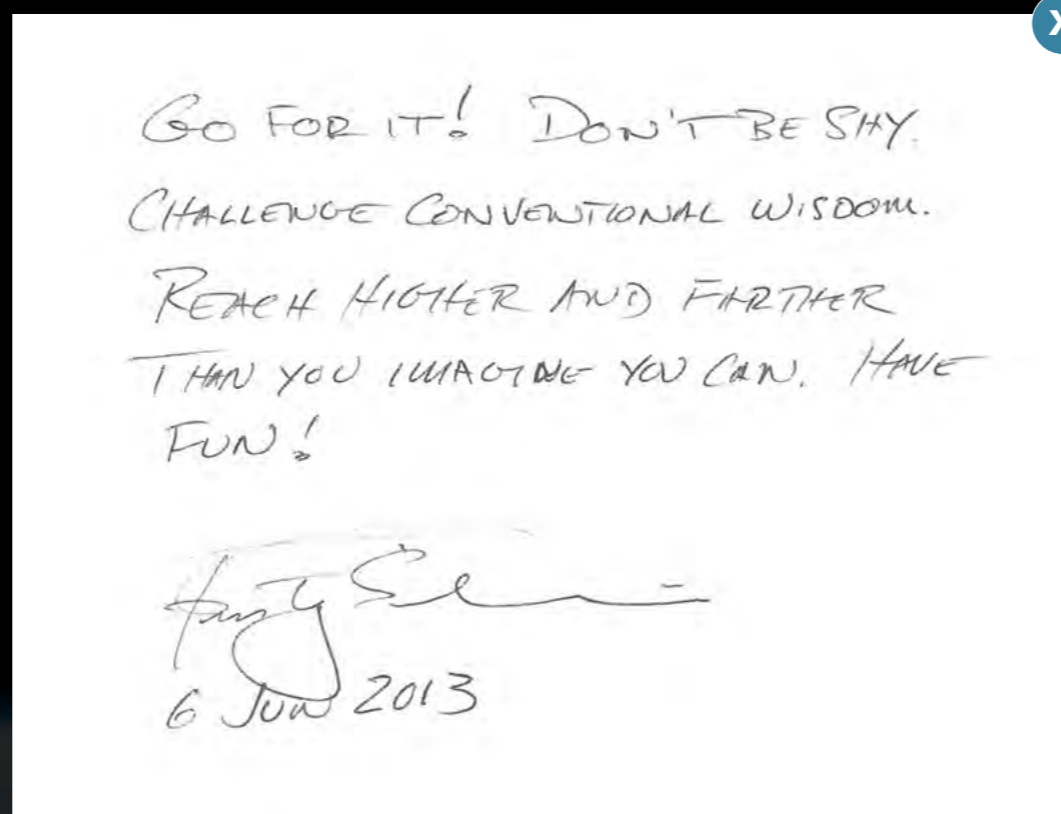 GO FOR IT! DON'T BE SHY.
CHALLENGE CONVENTIONAL WISDOM.
REACH HIGHER AND FARTHER
THAN YOU IMAGINE YOU CAN. HAVE
FUN!
6 JUN 2013
X